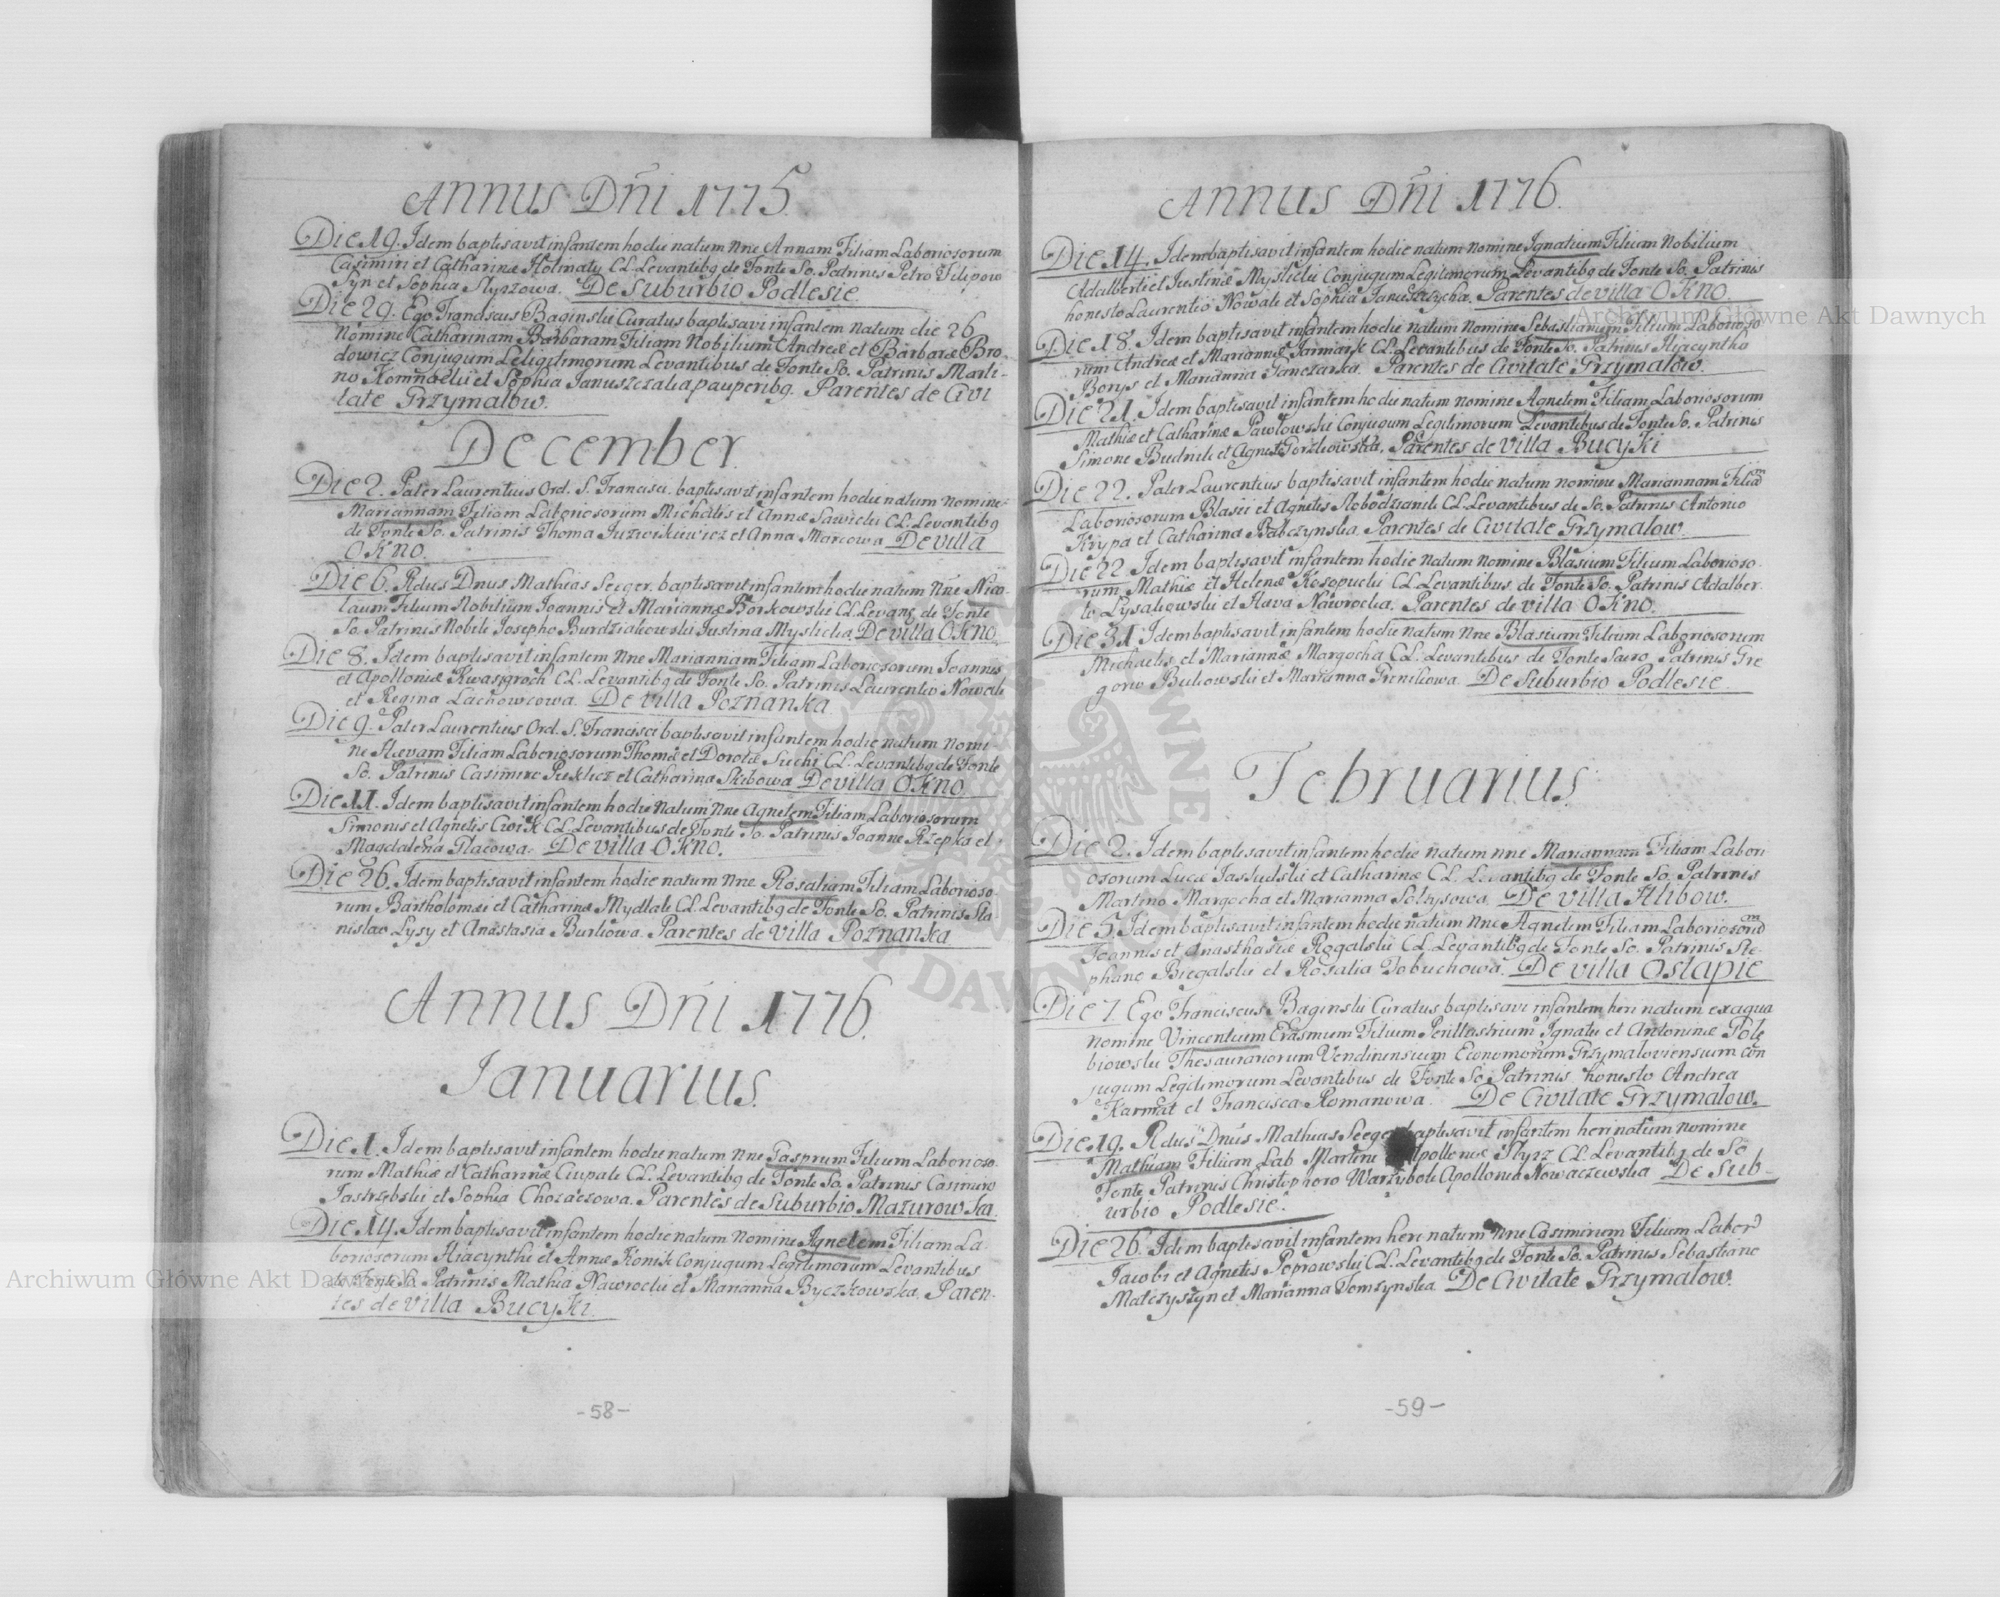 Annus Dñi 1775.
Die 19. Idem baptisavit infantem hodie natum Nne Annam Filiam Laboriosorum
Casimiri et Catharinæ Holmaty CL. Levantibq de Fonte So. Patrinis Petro Filipow
Syn et Sophia Slyzowa. De Suburbio Podlesie.
Die 29. Ego Franciscus Baginski Curatus baptisavi infantem natum die 26
Nomine Catharinam Barbaram Filiam Nobilium Andreæ et Barbaræ Bro-
dowicz Conjugum Legitimorum Levantibus de Fonte So. Patrinis Marti-
no et Sophia Januszzalia pauperibq. Parentes de Civi
tate Grzymalow.
December.
Die 2. Pater Laurentius Ord. S. Francisci. baptisavit infantem hodie natum nomine
Mariannam Filiam Laboriosorum Michælis et Annæ Sawicki CL. Levantibq
de Fonte So. Patrinis Thoma Juzwikiewicz et Anna Marcowa De villa
OKno.
Die 6. Rdus Dnus Mathias Seeger. baptisavit infantem hodie natum Nne Nico-
laum Filium Nobilium Joannis et Mariannæ Borkowski CL Levanq de Fonte
So. Patrinis Nobili Josepho Burdziakowski Justina Myslicka. De villa OKno.
Die 8. Idem baptisavit infantem Nne Mariannam Filiam Laboriosorum Joannis
et Apolloniæ Kwasigroch CL. Levantibq de Fonte So. Patrinis Laurentio Nowak
et Regina Lachowcowa. De villa Poznanka
Die 9. Pater Laurentius Ord. S. Francisci baptisavit infantem hodie natum nomi
ne Hævam Filiam Laboriosorum Thomæ et Dorotæ Suchi CL. Levantibq de Fonte
So. Patrinis Casimiro Puklicz et Catharina Skibowa De villa OKno
Die 11. Idem baptisavit infantem hodie natum Nne Agnetem Filiam Laboriosorum
Simonis et Agnetis CwiK CL Levantibus de Fonte So. Patrinis Joanne Rzepka et
Magdalena Glacowa. De villa OKno.
Die 26. Idem baptisavit infantem hodie natum Nne. Rosaliam Filiam Laborioso-
rum Bartholomæi et Catharinæ Mydlak CL. Levantibq de Fonte So. Patrinis Sta-
nislao Lysy et Anastasia Burliowa. Parentes de villa Poznanka
Annus Dñi 1776.
Januarius.
Die 1. Idem baptisavit infantem hodie natum Nne Gasprum Filium Laborioso-
rum Mathiæ et Catharinæ Ciupak CL. Levantibq de Fonte So. Patrinis Casimiro
Jastrzębski et Sophia Chozaczowa. Parentes de Suburbio MazurowKa.
Die 14. Idem baptisavit infantem hodie natum Nomine Agnetem Filiam La-
boriosorum Hiacynthi et Annæ Konik Conjugum Legitimorum Levantibus
de Fonte So. Patrinis Mathia Nawrocki et Marianna Byczkowska. Paren-
tes de villa BucyKi.
-58-
Annus Dñi 1776.
Die 14. Idem baptisavit infantem hodie natum nomine Ignatium Filium Nobilium
Adalberti et Justinæ Myslicki Conjugum Legitimorum Levantibq de Fonte So. Patrinis
honesto Laurentio Nowak et Sophia. Parentes de villa OKno.
Die 18. Idem baptisavit infantem hodie natum Nomine Sebastianum Filium Laborioso
rum Andreæ et Mariannæ CL. Levantibus de Fonte So. Patrinis Hiacyntho
Borys et Marianna Janczarka. Parentes de Civitate Grzymalow.
Die 21. Idem baptisavit infantem hodie natum nomine Agnetem Filiam Laboriosorum
Mathiæ et Catharinæ Pawlowski Conjugum Legitimorum Levantibus de Fonte So. Patrinis
Simone Budnik et Agnet Gorzkowska. Parentes de villa BucyKi
Die 22. Pater Laurentius baptisavit infantem hodie natum nomine Mariannam Filiam
Laboriosorum Blasii et Agnetis Slobodzianik CL. Levantibus de So. Patrinis Antonio
Krypa et Catharina Babczynska. Parentes de Civitate Grzymalow.
Die 22 Idem baptisavit infantem hodie natum nomine Blasium Filium Laborioso-
rum Mathiæ et Helenæ Kosopucki CL Levantibus de Fonte So. Patrinis Adalber
to Lysakowski et Hava Nawrocka. Parentes de villa OKno.
Die 31 Idem baptisavit infantem hodie natum Nne Blasium Filium Laboriosorum
Michaelis et Mariannæ Margocha CL. Levantibus de Fonte Sacro Patrinis Gre
gorio Bukowski et Marianna. De Suburbio Podlesie.
Februarius.
Die 2. Idem baptisavit infantem hodie natum nne Mariannam Filiam Labori
osorum Lucæ et Catharinæ CL. Levantibq de Fonte So. Patrinis
Martino Margocha et Marianna Soltysowa. De villa Hlibow.
Die 5. Idem baptisavit infantem hodie natum nne Agnetem Filiam Laboriosorum
Joannis et Anasthasiæ Rogalski CL Levantibq de Fonte So. Patrinis Ste-
phano Biegalski et Rosalia Tobuchowa. De villa Ostapie
Die 7. Ego Franciscus Baginski Curatus baptisavi infantem heri natum ex aqua
nomine Vincentium Erasmum Filium Perillustrium Ignatii et Antoninæ Gole
biowski Thesaurariorum Vendinensium Economorum Grzymaloviensium con
jugum Legitimorum Levantibus de Fonte So Patrinis honesto Andrea
Karmat et Francisca Romanowa. De Civitate Grzymalow.
Die 19. Rdus Dnus Mathias Seeger baptisavit infantem heri natum nomine
Mathiam Filium Lab Martini Apolloniæ Slyz CL Levantibq de So
Fonte Patrinis Christophoro Warzybok Apollonia Nowaczewska De Sub-
urbio Podlesie.
Die 26. Idem baptisavit infantem heri natum Nne Casimirum Filium Labor
Jacobi et Agnetis Poprowski CL. Levantibq de Fonte So. Patrinis Sebastiano
Malczyszyn et Marianna Tomzynska. De Civitate Grzymalow.
-59-
Archiwum Główne Akt Dawnych
Archiwum Główne Akt Dawnych